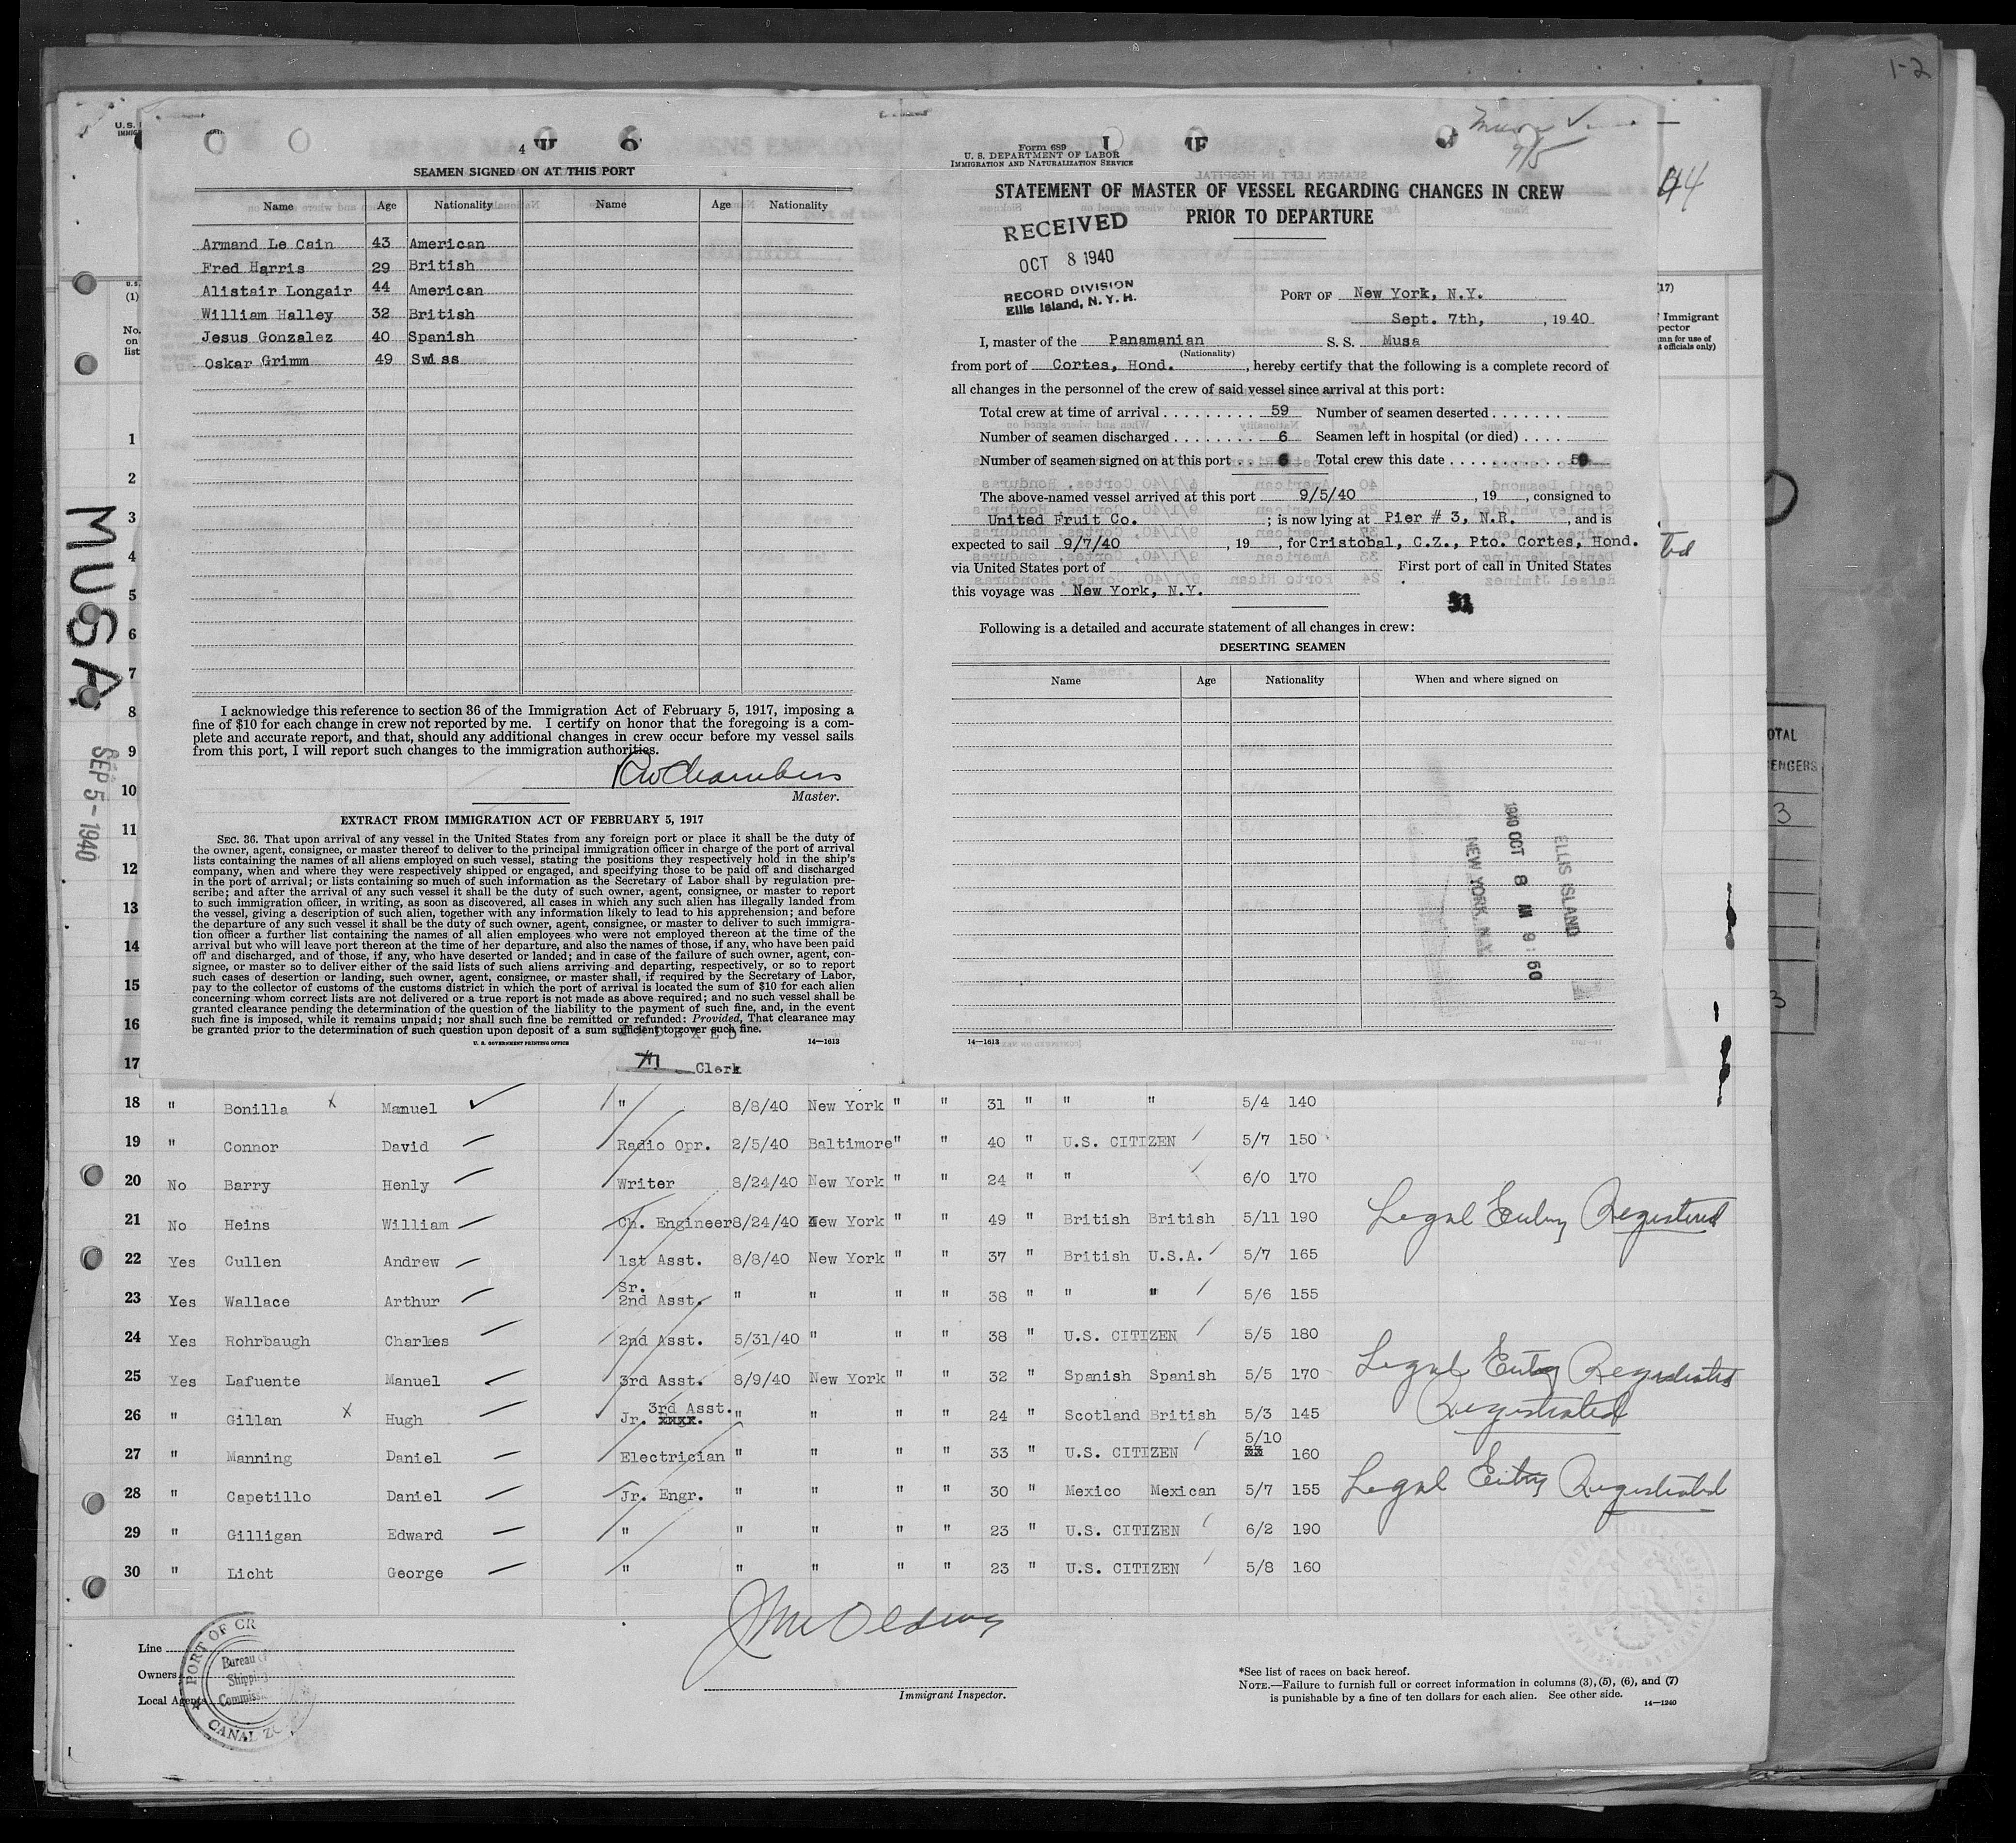 1-2
4
SEAMEN SIGNED ON AT THIS PORT
Name Age Nationality Name Age Nationality
Armand Le Cain 43 American
Fred Harris 29 British
Alistair Longair 44 American
William Halley 32 British
Jesus Gonzalez 40 Spanish
Oskar Grimm 49 Swiss
I acknowledge this reference to section 36 of the Immigration Act of February 5, 1917, imposing a
fine of $10 for each change in crew not reported by me. I certify on honor that the foregoing is a com-
plete and accurate report, and that, should any additional changes in crew occur before my vessel sails
from this port, I will report such changes to the immigration authorities.
RW Chambers
Master.
EXTRACT FROM IMMIGRATION ACT OF FEBRUARY 5, 1917
SEC. 36. That upon arrival of any vessel in the United States from any foreign port or place it shall be the duty of
the owner, agent, consignee, or master thereof to deliver to the principal immigration officer in charge of the port of arrival
lists containing the names of all aliens employed on such vessel, stating the positions they respectively hold in the ship's
company, when and where they were respectively shipped or engaged, and specifying those to be paid off and discharged
in the port of arrival; or lists containing so much of such information as the Secretary of Labor shall by regulation pre-
scribe; and after the arrival of any such vessel it shall be the duty of such owner, agent, consignee, or master to report
to such immigration officer, in writing, as soon as discovered, all cases in which any such alien has illegally landed from
the vessel, giving a description of such alien, together with any information likely to lead to his apprehension; and before
the departure of any such vessel it shall be the duty of such owner, agent, consignee, or master to deliver to such immigra-
tion officer a further list containing the names of all alien employees who were not employed thereon at the time of the
arrival but who will leave port thereon at the time of her departure, and also the names of those, if any, who have been paid
off and discharged, and of those, if any, who have deserted or landed; and in case of the failure of such owner, agent, con-
signee, or master so to deliver either of the said lists of such aliens arriving and departing, respectively, or so to report
such cases of desertion or landing, such owner, agent, consignee, or master shall, if required by the Secretary of Labor,
pay to the collector of customs of the customs district in which the port of arrival is located the sum of $10 for each alien
concerning whom correct lists are not delivered or a true report is not made as above required; and no such vessel shall be
granted clearance pending the determination of the question of the liability to the payment of such fine, and, in the event
such fine is imposed, while it remains unpaid; nor shall such fine be remitted or refunded: Provided, That clearance may
be granted prior to the determination of such question upon deposit of a sum sufficient to cover such fine.
INDEXED
U. S. GOVERNMENT PRINTING OFFICE 14—1613
Clerk
Musa
9/5
Form 689
U. S. DEPARTMENT OF LABOR
IMMIGRATION AND NATURALIZATION SERVICE
STATEMENT OF MASTER OF VESSEL REGARDING CHANGES IN CREW
PRIOR TO DEPARTURE
RECEIVED
OCT 8 1940
RECORD DIVISION
Ellis Island, N. Y. H.
PORT OF New York, N.Y.
Sept. 7th, , 1940
I, master of the Panamanian S. S. Musa
(Nationality)
from port of Cortes, Hond. , hereby certify that the following is a complete record of
all changes in the personnel of the crew of said vessel since arrival at this port:
Total crew at time of arrival 59 Number of seamen deserted
Number of seamen discharged 6 Seamen left in hospital (or died)
Number of seamen signed on at this port 6 Total crew this date 59
The above-named vessel arrived at this port 9/5/40 , 19 , consigned to
United Fruit Co. ; is now lying at Pier # 3, N.R. , and is
expected to sail 9/7/40 , 19 , for Cristobal, C.Z., Pto. Cortes, Hond.
via United States port of First port of call in United States
this voyage was New York, N.Y.
Following is a detailed and accurate statement of all changes in crew:
DESERTING SEAMEN
Name Age Nationality When and where signed on
1940 OCT 8 M 9:50
ELLIS ISLAND
NEW YORK, N.Y.
14—1613
MUSA
SEP 5-1940
44
(1)
No. on list
(17)
Immigrant
1
2
3
4
5
6
7
8
9
10
11
12
13
14
15
16
17
18 " Bonilla x Manuel " 8/8/40 New York " " 31 " " " 5/4 140
19 " Connor David Radio Opr. 2/5/40 Baltimore " " 40 " U.S. CITIZEN 5/7 150
20 No Barry Henly Writer 8/24/40 New York " " 24 " " 6/0 170
21 No Heins William Ch. Engineer 8/24/40 New York " " 49 " British British 5/11 190 Legal Entry Registered
22 Yes Cullen Andrew 1st Asst. 8/8/40 New York " " 37 " British U.S.A. 5/7 165
23 Yes Wallace Arthur Sr. 2nd Asst. " " " " 38 " " " 5/6 155
24 Yes Rohrbaugh Charles 2nd Asst. 5/31/40 " " " 38 " U.S. CITIZEN 5/5 180
25 Yes Lafuente Manuel 3rd Asst. 8/9/40 New York " " 32 " Spanish Spanish 5/5 170 Legal Entry Registrated
26 " Gillan x Hugh Jr. 3rd Asst. " " " " 24 " Scotland British 5/3 145 Registrated
27 " Manning Daniel Electrician " " " " 33 " U.S. CITIZEN 5/10 160
28 " Capetillo Daniel Jr. Engr. " " " " 30 " Mexico Mexican 5/7 155 Legal Entry Registrated
29 " Gilligan Edward " " " " " 23 " U.S. CITIZEN 6/2 190
30 " Licht George " " " " " 23 " U.S. CITIZEN 5/8 160
Line
Owners
Local Agents
PORT OF CR
Bureau of
Shipping
CANAL ZO
Immigrant Inspector.
*See list of races on back hereof.
NOTE.—Failure to furnish full or correct information in columns (3), (5), (6), and (7)
is punishable by a fine of ten dollars for each alien. See other side.
14—1240